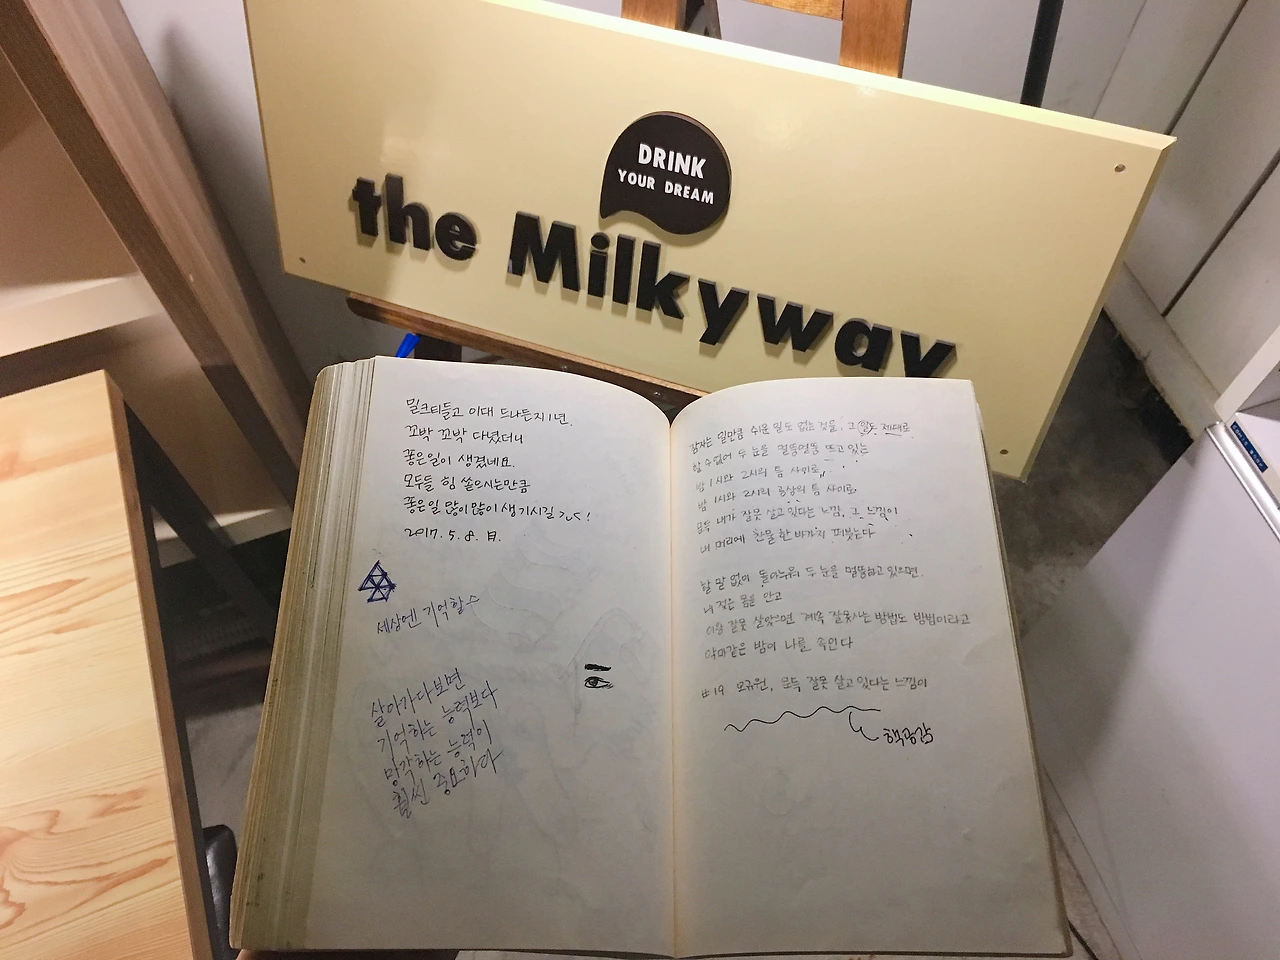 DRINK
YOUR DREAM
the Milkyway
밀크티들고 이대 드나든지 1년.
꼬박 꼬박 다녔더니
좋은일이 생겼네요.
모두들 힘 쏟으시는만큼
좋은일 많이많이 생기시길 ㄱㄷ!
2017. 5. 8. 月.
세상엔 기억할수
살아가다보면
기억하는 능력보다
망각하는 능력이
훨씬 중요하다
잠자는 일만큼 쉬운 일도 없는 것을, 그 일도 제대로
할 수 없어 두 눈을 멀뚱멀뚱 뜨고 있는
밤 1시와 2시의 틈 사이로
밤 1시와 2시의 공상의 틈 사이로
문득 내가 잘못 살고 있다는 느낌, 그 느낌이
내 머리에 찬물 한 바가지 퍼붓는다
할 말 없이 돌아누워 두 눈을 멀뚱하고 있으면,
내 젖은 몸을 안고
이왕 잘못 살았으면 계속 잘못사는 방법도 방법이라고
악마같은 밤이 나를 속인다
#19 오규원, 문득 잘못 살고 있다는 느낌이
핵공감